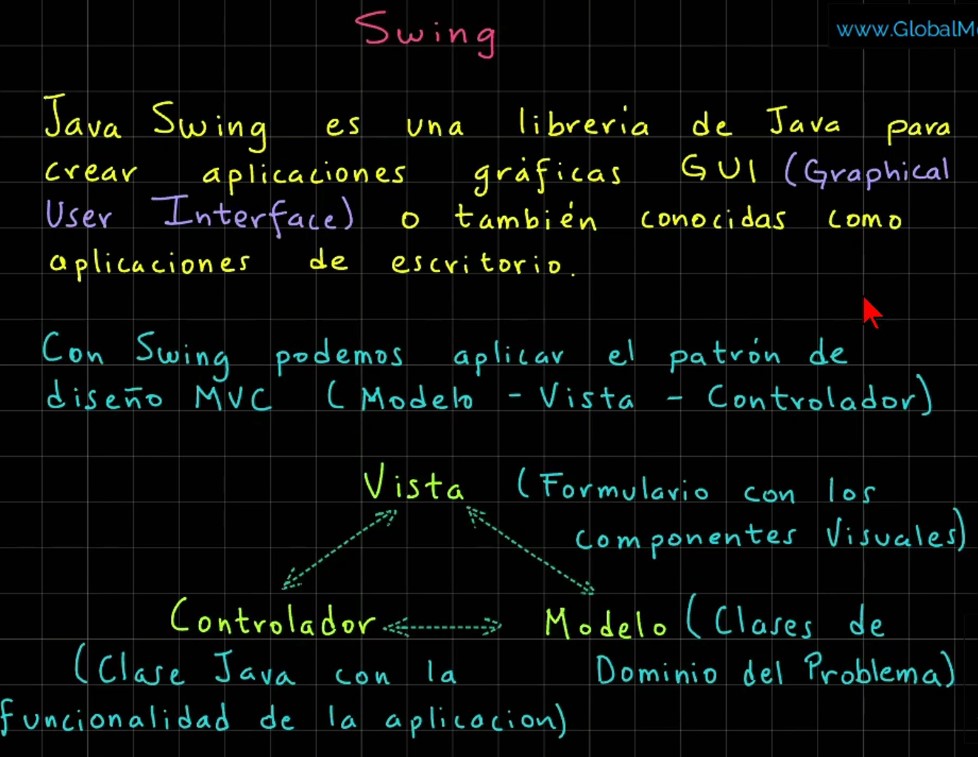 Swing
www.GlobalM
Java Swing es una librería de Java para
crear aplicaciones gráficas GUI (Graphical
User Interface) o también conocidas como
aplicaciones de escritorio.
Con Swing podemos aplicar el patrón de
diseño MVC (Modelo - Vista - Controlador)
Vista (Formulario con los
componentes Visuales)
Controlador Modelo (Clases de
(Clase Java con la Dominio del Problema)
funcionalidad de la aplicacion)